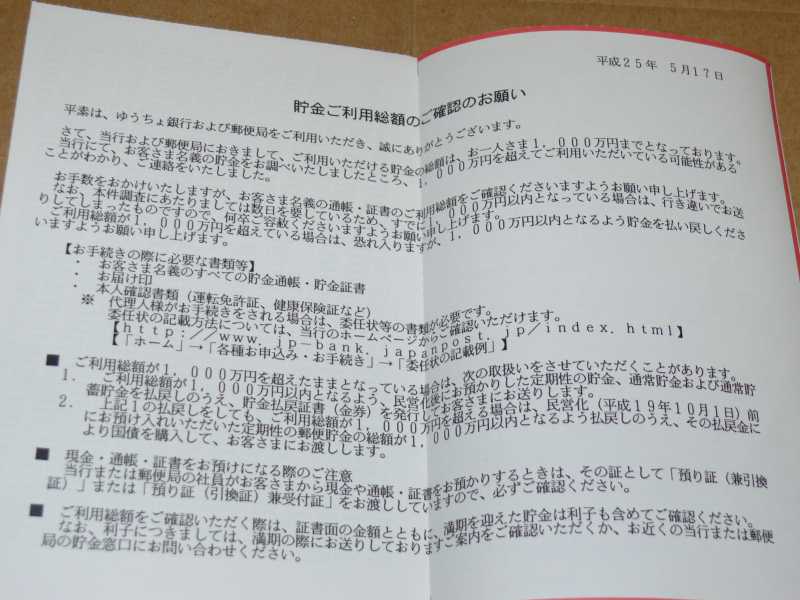 平成25年 5月17日
貯金ご利用総額のご確認のお願い
平素は、ゆうちょ銀行および郵便局をご利用いただき、誠にありがとうございます。
さて、当行および郵便局におきまして、ご利用いただける貯金の総額は、お一人さま1,000万円までとなっております。
当行にて、お客さま名義の貯金をお調べいたしましたところ、1,000万円を超えてご利用いただいている可能性がある
ことがわかり、ご連絡をいたしました。
お手数をおかけいたしますが、お客さま名義の通帳・証書のご利用総額をご確認くださいますようお願い申し上げます。
なお、本件調査にあたりましては数日を要しているため、すでに1,000万円以内となっている場合は、行き違いでお送
りしてしまったものですので、何卒ご容赦くださいますようお願い申し上げます。
ご利用総額が1,000万円を超えている場合は、恐れ入りますが、1,000万円以内となるよう貯金を払い戻しくださ
いますようお願い申し上げます。
【お手続きの際に必要な書類等】
・ お客さま名義のすべての貯金通帳・貯金証書
・ お届け印
・ 本人確認書類(運転免許証、健康保険証など)
※ 代理人様がお手続きをされる場合は、委任状等の書類が必要です。
委任状の記載方法については、当行のホームページからご確認いただけます。
【http://www.jp-bank.japanpost.jp/index.html】
【「ホーム」→「各種お申込み・お手続き」→「委任状の記載例」】
■ ご利用総額が1,000万円を超えたままとなっている場合は、次の取扱いをさせていただくことがあります。
1. ご利用総額が1,000万円以内となるよう、民営化後にお預かりした定期性の貯金、通常貯金および通常貯
蓄貯金を払戻しのうえ、貯金払戻証書(金券)を発行してお客さまにお送りします。
2. 上記1の払戻しをしても、ご利用総額が1,000万円を超える場合は、民営化(平成19年10月1日)前
にお預け入れいただいた定期性の郵便貯金の総額が1,000万円以内となるよう払戻しのうえ、その払戻金に
より国債を購入して、お客さまにお渡しします。
■ 現金・通帳・証書をお預けになる際のご注意
当行または郵便局の社員がお客さまから現金や通帳・証書をお預かりするときは、その証として「預り証(兼引換
証)」または「預り証(引換証)兼受付証」をお渡ししていますので、必ずご確認ください。
■ ご利用総額をご確認いただく際は、証書面の金額とともに、満期を迎えた貯金は利子も含めてご確認ください。
なお、利子につきましては、満期の際にお送りしておりますご案内をご確認いただくか、お近くの当行または郵便
局の貯金窓口にお問い合わせください。